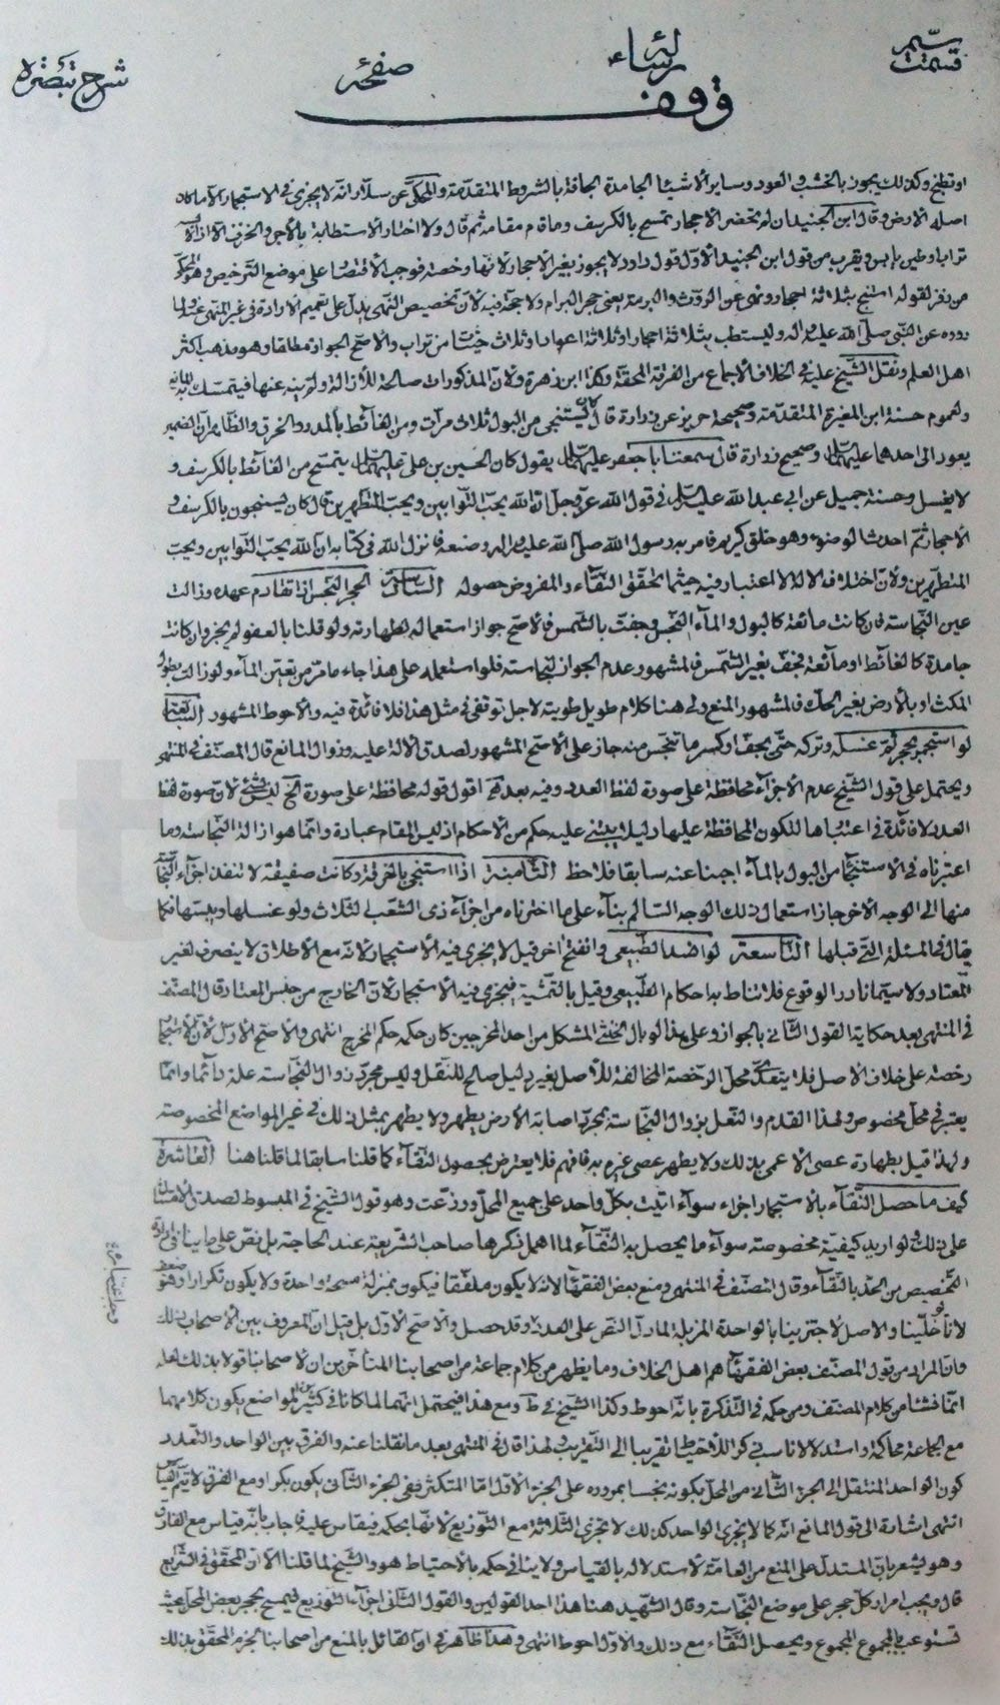 رسائل
قسمت
وقف
صفحه
شرح تبصره
او تطبخ وكذلك يجوز بالخشب والعود وساير الأشياء الجامدة الجافة بالشروط المتقدمة والمحكي عن سلار انه لا يجزي في الاستجمار الا ما كان
اصله الأرض وقال ابن الجنيد ان لم تحضر الأحجار تمسح بالكرسف وما قام مقامه ثم قال ولا اختار الاستطابة بالآجر والخزف الا اذا لابسه
تراب او طين يابس ويقرب من قول ابن الجنيد الأول قول داود لا يجوز بغير الأحجار لانها رخصة فوجب الاقتصار على موضع الترخيص وهو المحكي
عن زفر لقوله استنج بثلاثة احجار ونهى عن الروث والرمة يعني حجر البرام ولا حجة فيه لان تخصيص النهي يدل على تعميم الارادة في غير المنهي عنه ولما
رووه عن النبي صلى الله عليه واله وليستطب بثلاثة احجار او ثلاثة اعواد او ثلاث حثيات من تراب والأصح الجواز مطلقا وهو مذهب اكثر
اهل العلم ونقل الشيخ عليه في الخلاف الاجماع من الفرقة المحقة وكذا ابن زهرة ولان المذكورات صالحة للازالة ولم ينه عنها فيتمسك
ولعموم حسنة ابن المغيرة المتقدمة وصحيحة حريز عن زرارة قال كان يستنجي من البول ثلاث مرات ومن الغائط بالمدر والخرق والظاهر ان الضمير
يعود الى احدهما عليهما السلام وصحيح زرارة قال سمعت ابا جعفر عليه السلام يقول كان الحسين بن علي عليهما السلام يتمسح من الغائط بالكرسف و
لا يغسل وحسنة جميل عن ابي عبد الله عليه السلام في قول الله عز وجل ان الله يحب التوابين ويحب المتطهرين قال كان يستنجون بالكرسف و
الأحجار ثم احدث الوضوء وهو خلق كريم فامر به رسول الله صلى الله عليه واله وصنعه فانزل الله في كتابه ان الله يحب التوابين ويحب
المتطهرين ولان اختلاف الآلة لا اعتبار فيه حيثما تحقق النقاء والمفروض حصوله السادس الحجر النجس اذا تقادم عهده وزالت
عين النجاسة فان كانت مائعة كالبول والماء النجس وجفت بالشمس فالأصح جواز استعماله لطهارته ولو قلنا بالعفو لم يجز وان كانت
جامدة كالغائط او مائعة فجفت بغير الشمس فالمشهور عدم الجواز لنجاسته فلو استعمله على هذا جاء ما مر من تعين الماء ولو زالت بطول
المكث او بالأرض بغير الحك فالمشهور المنع ولي هنا كلام طويل طويته لاجل توقفي في مثل هذا فلا فائدة فيه والأحوط المشهور السابعة
لو استجمر بحجر ثم غسله وتركه حتى يجف او كسر ما تنجس منه جاز على الأصح المشهور لصدق الآلة عليه وزوال المانع قال المصنف في المنتهى
ويحتمل على قول الشيخ عدم الاجزاء محافظة على صورة لفظ العدد وفيه بعد انتهى اقول قوله محافظة على صورة الخ ليس بشئ لان صورة لفظ
العدد لا فائدة في اعتبارها لتكون المحافظة عليها دليلا يبتني عليه حكم من الأحكام اذ ليس المقام عبارة وانما هو ازالة النجاسة وما
اعتبرناه في الاستنجاء من البول بالماء اجبنا عنه سابقا فلاحظ الثامنة اذا استنجى بالخرقة وكانت صفيقة لا تنفذ اجزاء النجاسة
منها الى الوجه الاخر جاز استعمال ذلك الوجه السالم بناء على ما اخترناه من اجزاء ذي الشعب الثلاث ولو غسلها ويبسها فكما
يقال في المسئلة التي قبلها التاسعة لو انسد الطبيعي وانفتح اخر قيل لا يجزي فيه الاستجمار لانه مع الاطلاق لا ينصرف لغير
المعتاد ولا سيما نادر الوقوع فلا تناط به احكام الطبيعي وقيل بالتمشية فيجزي فيه الاستجمار لان الخارج من جنس المعتاد قال المصنف
في المنتهى بعد حكاية القول الثاني بالجواز وعلى هذا لو بال الخنثى المشكل من احد المخرجين كان حكمه حكم المخرج انتهى والأصح الأول لان الاستنجاء
رخصة على خلاف الأصل فلا يتعدى محل الرخصة المخالفة للأصل بغير دليل صالح للنقل وليس مجرد زوال النجاسة علة دائما وانما
يعتبر في محل مخصوص ولهذا القدم والنعل بزوال النجاسة بمجرد اصابة الأرض يطهر ولا يطهر بمثل ذلك في غير المواضع المخصوصة
ولهذا قيل بطهارة عصى الأعمى بذلك ولا يطهر عصى غيره به فافهم فلا يعترض بحصول النقاء كما قلنا سابقا لما قلنا هنا العاشرة
كيف ما حصل النقاء بالاستجمار اجزاء سواء اتيت بكل واحد على جميع المحل او وزعت وهو قول الشيخ في المبسوط لصدق الامتثال
على ذلك ولو اريد كيفية مخصوصة سواء ما يحصل به النقاء لما اهمل ذكرها صاحب الشريعة عند الحاجة بل نص على
التخصيص من الحد بالنقاء وقال المصنف في المنتهى ومنع بعض الفقهاء لانه لا يكون ملفقا فيكون بمنزلة مسحة واحدة ولا يكون تكرارا وهو ضعيف
لانا لو خلينا والأصل لاجتزينا بالواحدة المزيلة لما دل النص على العدد وقد حصل والأصح الأول بل قيل ان المعروف بين الأصحاب ذلك
وان المراد من قول المصنف بعض الفقهاء هم اهل الخلاف وما يظهر من كلام جماعة من اصحابنا المتأخرين ان لاصحابنا قولا بذلك لعله
انما نشأ من كلام المصنف ومن حكمه في التذكرة بانه احوط وكذا الشيخ في ط ومع هذا فيحتمل انهما لما كانا في كثير من المواضع يكون كلامهما
مع الجماعة محاكمة واستدلالا ناسب ذكر الاحتياط تقريبا الى التقريب ولهذا قال في المنتهى بعد ما نقلنا عنه والفرق بين الواحد والتعدد
كون الواحد المنتقل الى الجزء الثاني من المحل يكون نجسا بمروره على الجزء الأول اما المتكثر ففي الجزء الثاني يكون بكرا ومع الفرق لا يتم القياس
انتهى اشارة الى قول المانع انه كما لا يجزي الواحد كذلك لا تجزي الثلاثة مع التوزيع لانها بحكمه فيقاس عليه فاجاب بانه قياس مع الفارق
وهو يشعر بان المستدل على المنع من العامة لاستدلاله بالقياس ولا ينافي حكمه بالاحتياط هو والشيخ لما قلنا الا ان المحقق في الشرائع
قال ويجب امرار كل حجر على موضع النجاسة وقال الشهيد هنا هذا احد القولين والقول الثاني اجزاء التوزيع فيمسح بحجر بعض المحل بحيث
تستوعب بالمجموع المجموع ويحصل النقاء مع ذلك والأول احوط انتهى وهذا ظاهر في ان القائل بالمنع من اصحابنا لجزم المحقق بذلك